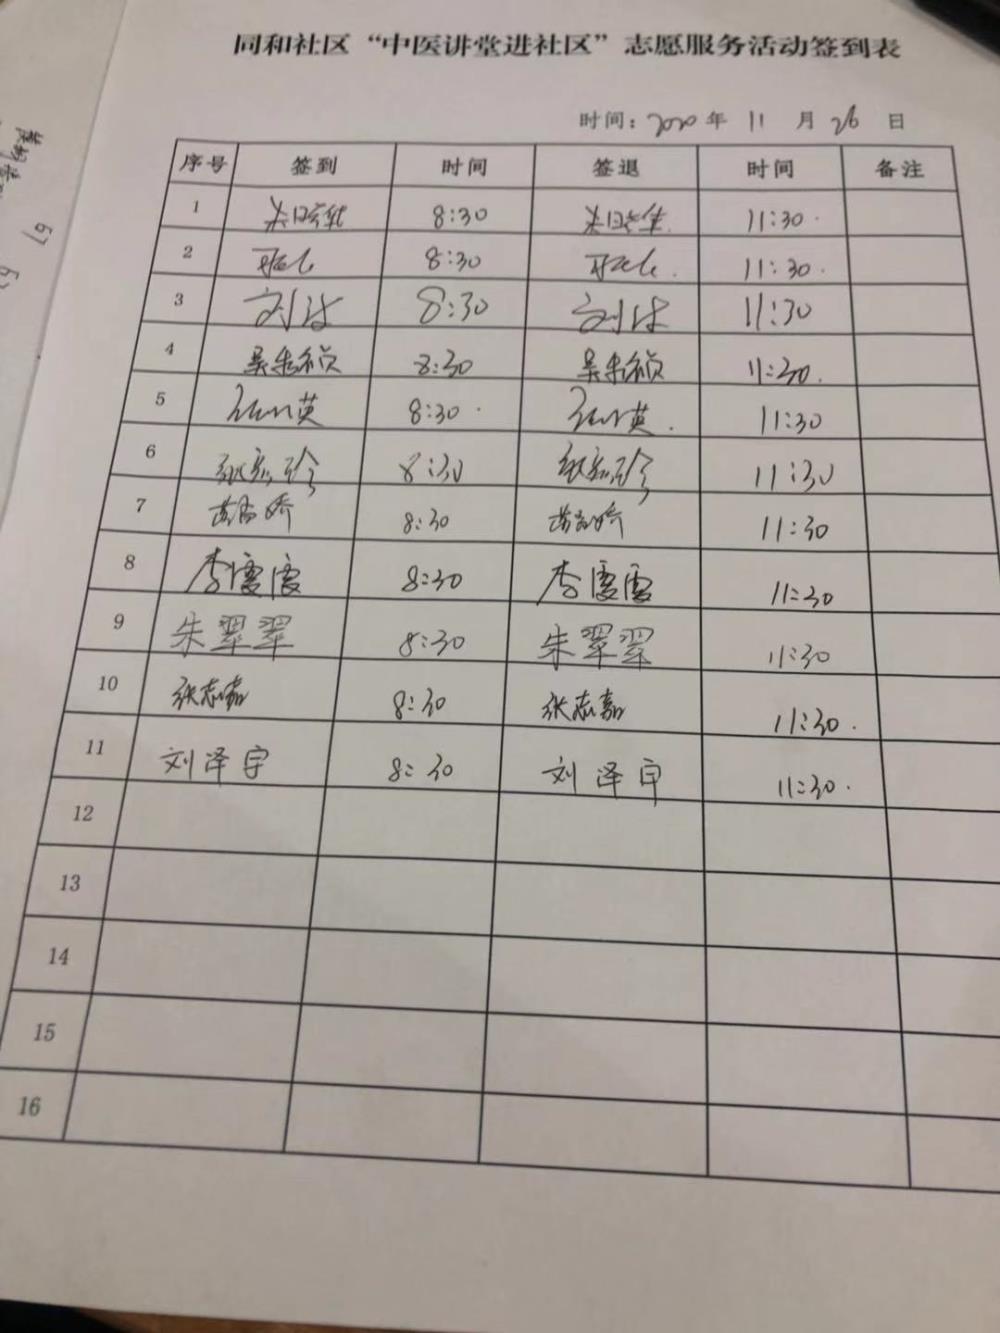 同和社区“中医讲堂进社区”志愿服务活动签到表
时间：2020年 11 月 26 日
序号 签到 时间 签退 时间 备注
1 8:30 11:30.
2 8:30 11:30.
3 刘 8:30 刘 11:30
4 8:30 11:30.
5 英 8:30. 英. 11:30
6 珍 8:30 珍 11:30
7 娇 8:30 娇 11:30
8 李霞霞 8:30 李霞霞 11:30
9 朱翠翠 8:30 朱翠翠 11:30
10 张志嘉 8:30 张志嘉 11:30.
11 刘泽宇 8:30 刘泽宇 11:30.
12
13
14
15
16